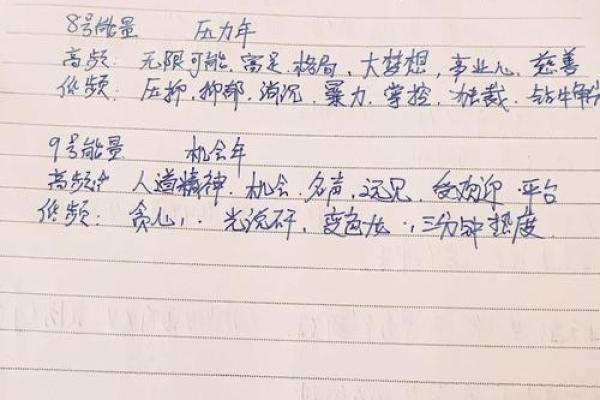 8号能量 压力年
高频: 无限可能、富足、格局、大梦想、事业心、慈善
低频: 压抑、抑郁、消沉、暴力、掌控、独裁、钻牛角
9号能量 机会年
高频: 人道精神、机会、名声、远见、受欢迎、平台
低频: 贪心、光说不、变色龙、三分钟热度